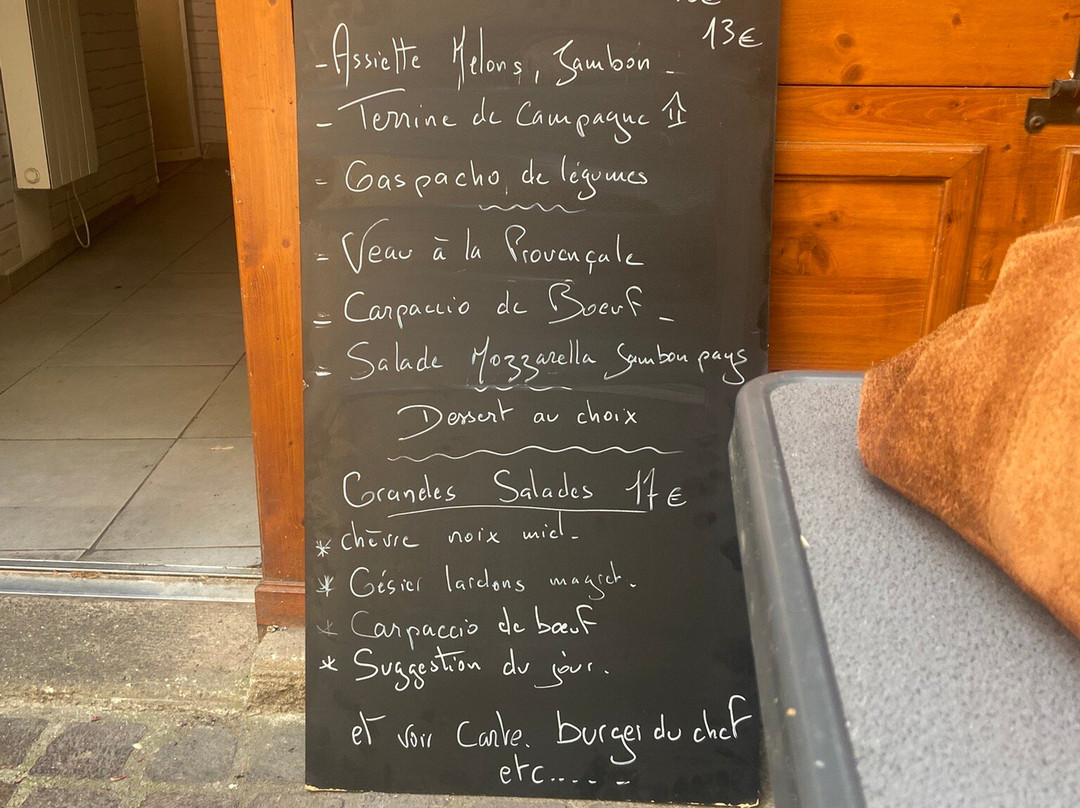 13€
- Assiette Melons, Jambon -
- Terrine de Campagne
= Gaspacho de légumes
= Veau à la Provençale
= Carpaccio de Boeuf -
= Salade Mozzarella Jambon pays
Dessert au choix
Grandes Salades 17€
* chèvre noix miel -
* Gésier lardons magret.
* Carpaccio de bœuf
* Suggestion du jour.
et voir Carte. burger du chef
etc..... -